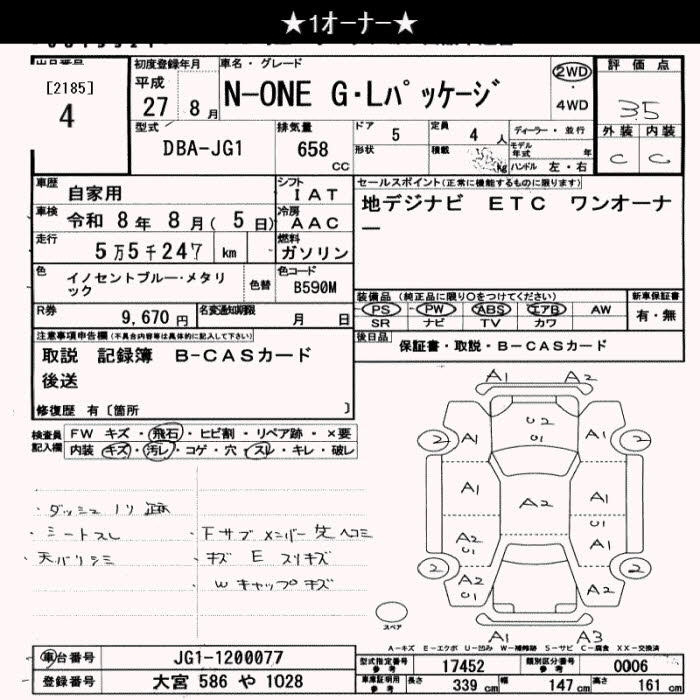 ★1オーナー★
初度登録年月
車名・グレード
評価点
[2185]
4
平成
27 8月
N-ONE G・Lパッケージ
2WD
4WD
3.5
型式
DBA-JG1
排気量
658
CC
ドア
5
定員
4人
ディーラー・並行
形状
積載
kg
モデル年式
年
ハンドル 左・右
外装 内装
C C
車歴
自家用
シフト
IAT
車検
令和 8年 8月( 5日)
冷房
AAC
走行
5万5千247 km
燃料
ガソリン
セールスポイント(正常に機能するものに限ります)
地デジナビ ETC ワンオーナ
ー
色
イノセントブルー・メタリ
ック
色替
色コード
B590M
装備品 (純正品に限り○をつけてください)
新車保証書
PS PW ABS エアB AW
SR ナビ TV カワ
有・無
R券
9,670円
名変通知期限
月 日
後日品
保証書・取説・B-CASカード
注意事項申告欄(不具合内容等は具体的に記入して下さい)
取説 記録簿 B-CASカード
後送
修復歴 有〔箇所 〕
検査員
記入欄
FW キズ・飛石・ヒビ割・リペア跡・×要
内装 キズ・汚レ・コゲ・穴・スレ・キレ・破レ
・ダッシュ ノリ跡
・シートスレ
・天バリシミ
・下サブメンバー 先ヘコミ
・キズ E スリキズ
W キャップキズ
A1 A2
2 A1 U2 U1 A1 2
A1 A2 A1 U1
A2 U1 A1
2 A2 U1 A2 2
A1 A3
スペア
A-キズ E-エクボ U-凹み W-補修跡 S-サビ C-腐食 XX-交換済
車台番号
JG1-1200077
型式指定番号
参考
17452
類別区分番号
参考
0006
登録番号
大宮 586 や 1028
車庫証明用
参考
長さ
339 cm
幅
147 cm
高さ
161 cm